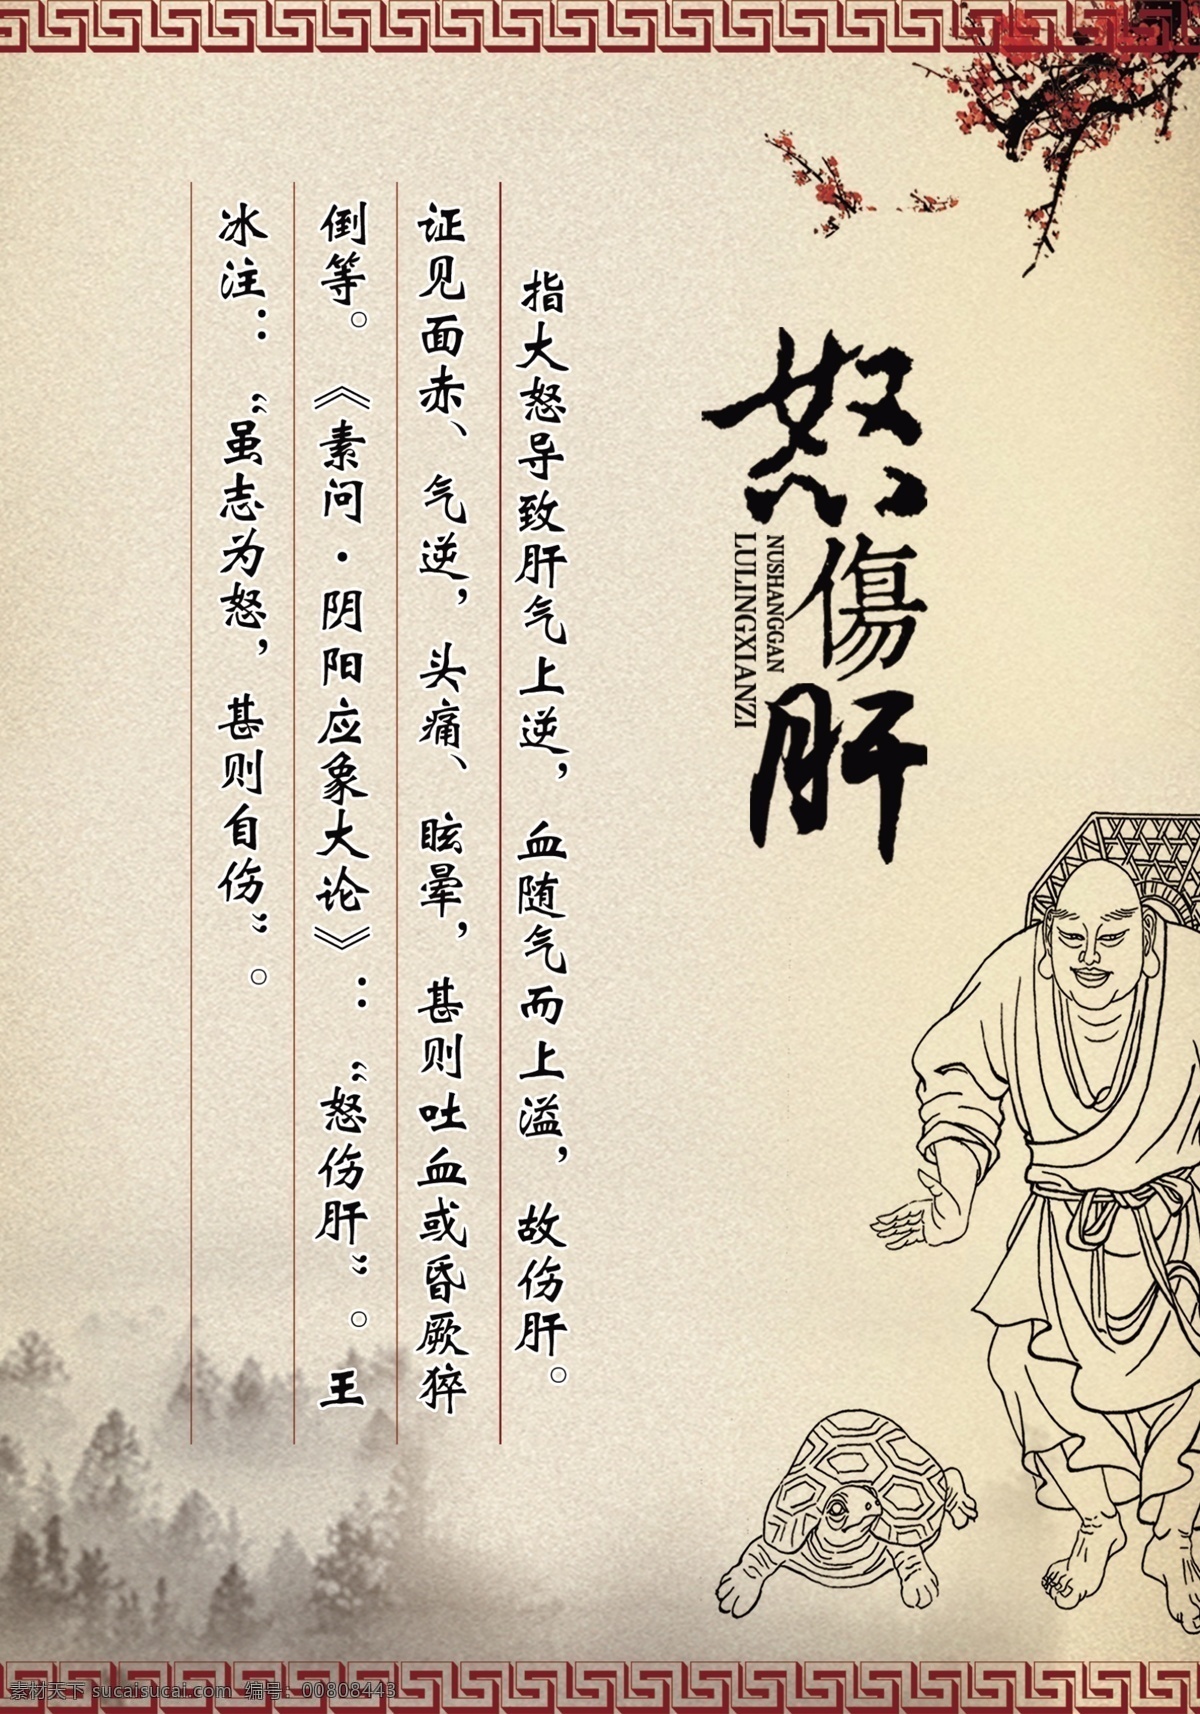 怒傷肝
NUSHANGGAN
LULINGXIANZI
指大怒导致肝气上逆，血随气而上溢，故伤肝。
证见面赤、气逆，头痛、眩晕，甚则吐血或昏厥猝
倒等。《素问·阴阳应象大论》：“怒伤肝”。王
冰注：“虽志为怒，甚则自伤”。
素材天下 sucaisucai.com 编号：00808443